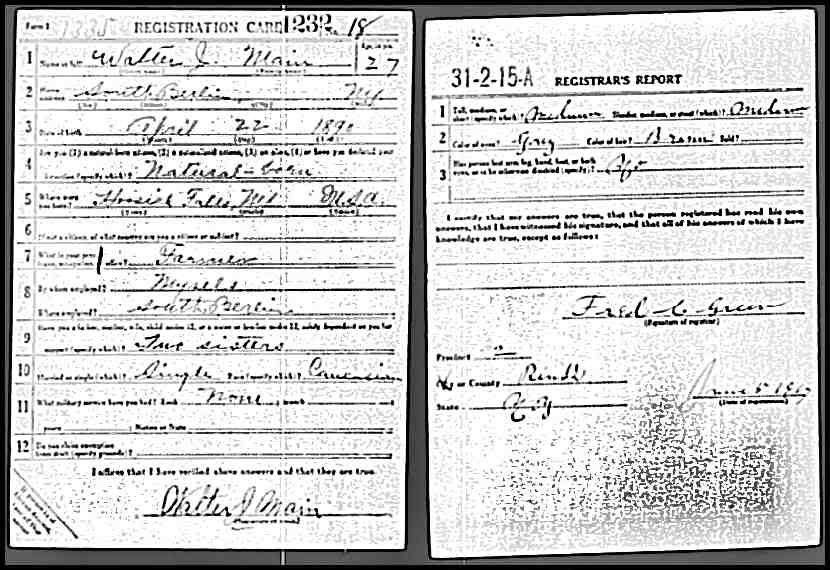 Form 1 1335 REGISTRATION CARD 1232 No. 18
1 Name in full Walter J. Main Age, in yrs. 27
(Given name) (Family name)
2 Home address South Berlin NY
(No.) (Street) (City) (State)
3 Date of birth April 22 1890
(Month) (Day) (Year)
4 Are you (1) a natural-born citizen, (2) a naturalized citizen, (3) an alien, (4) or have you declared your
intention (specify which)? Natural-born
5 Where were you born? Hoosick Falls, NY USA
(Town) (State) (Nation)
6 If not a citizen, of what country are you a citizen or subject?
7 What is your present trade, occupation, or office? Farmer
8 By whom employed? Myself
Where employed? South Berlin
9 Have you a father, mother, wife, child under 12, or a sister or brother under 12, solely dependent on you for
support (specify which)? Two sisters
10 Married or single (which)? Single Race (specify which)? Caucasian
11 What military service have you had? Rank None ; branch
years ; Nation or State
12 Do you claim exemption
from draft (specify grounds)?
I affirm that I have verified above answers and that they are true.
Walter J Main
31-2-15-A REGISTRAR'S REPORT
1 Tall, medium, or short (specify which)? Medium Slender, medium, or stout (which)? Medium
2 Color of eyes? Grey Color of hair? Brown Bald?
3 Has person lost arm, leg, hand, foot, or both
eyes, or is he otherwise disabled (specify)? No
I certify that my answers are true, that the person registered has read his own
answers, that I have witnessed his signature, and that all of his answers of which I have
knowledge are true, except as follows:
Fred C
(Signature of registrar)
Precinct 2
City or County Renss
State N Y June 5 1917
(Date of registration)